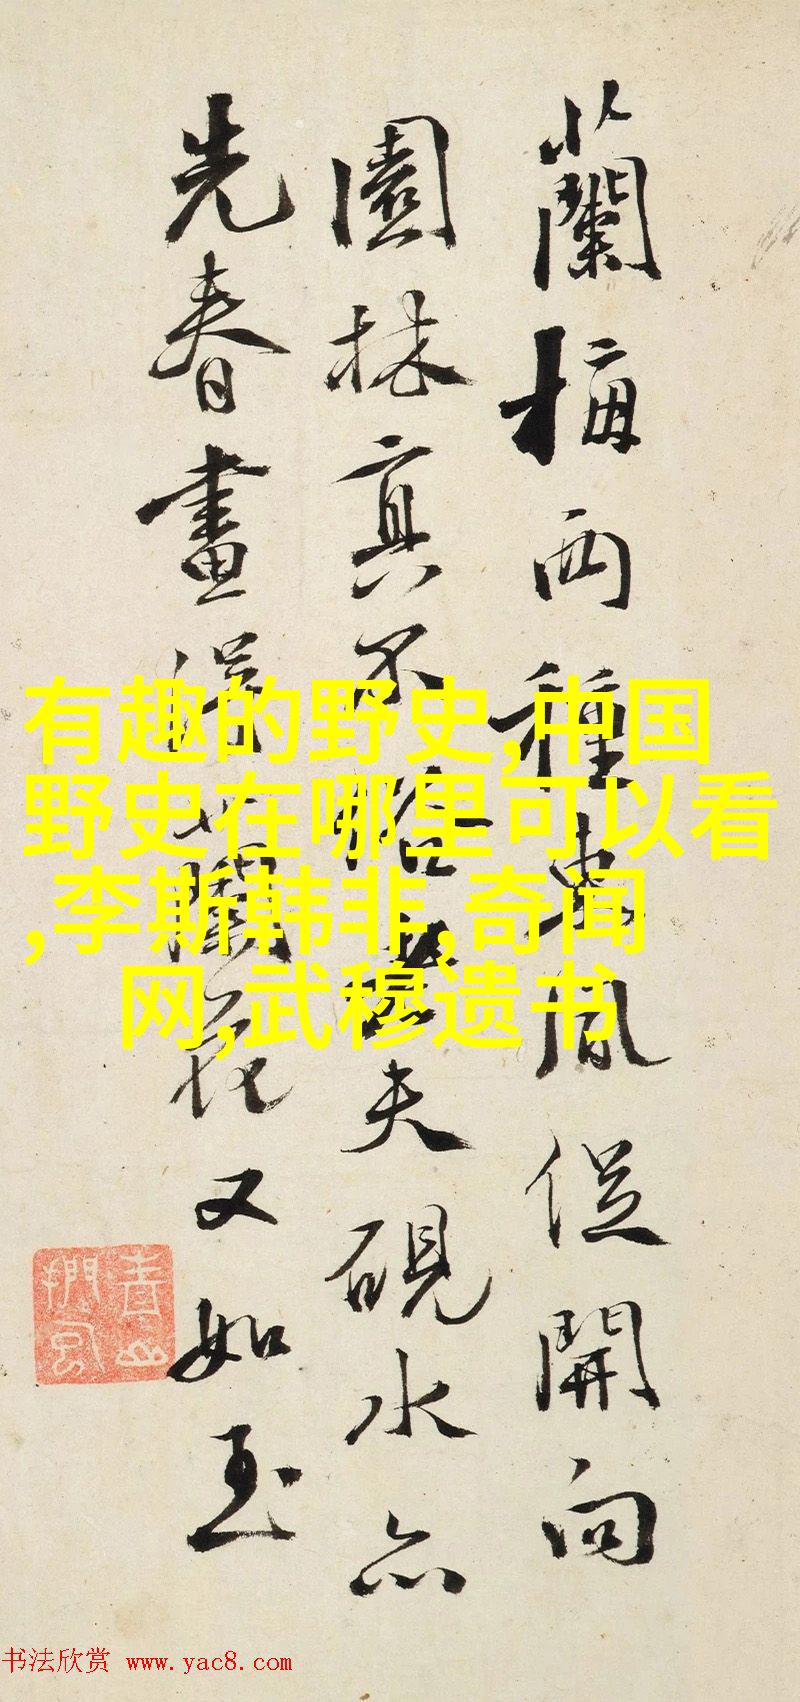 蘭梅両種東風從開向
園林真不俗老夫硯水亦
先春畫得蘭花又如玉
有趣的野史,中国
野史在哪里可以看
,李斯韩非,奇闻
网,武穆遗书
书法欣赏 www.yac8.com